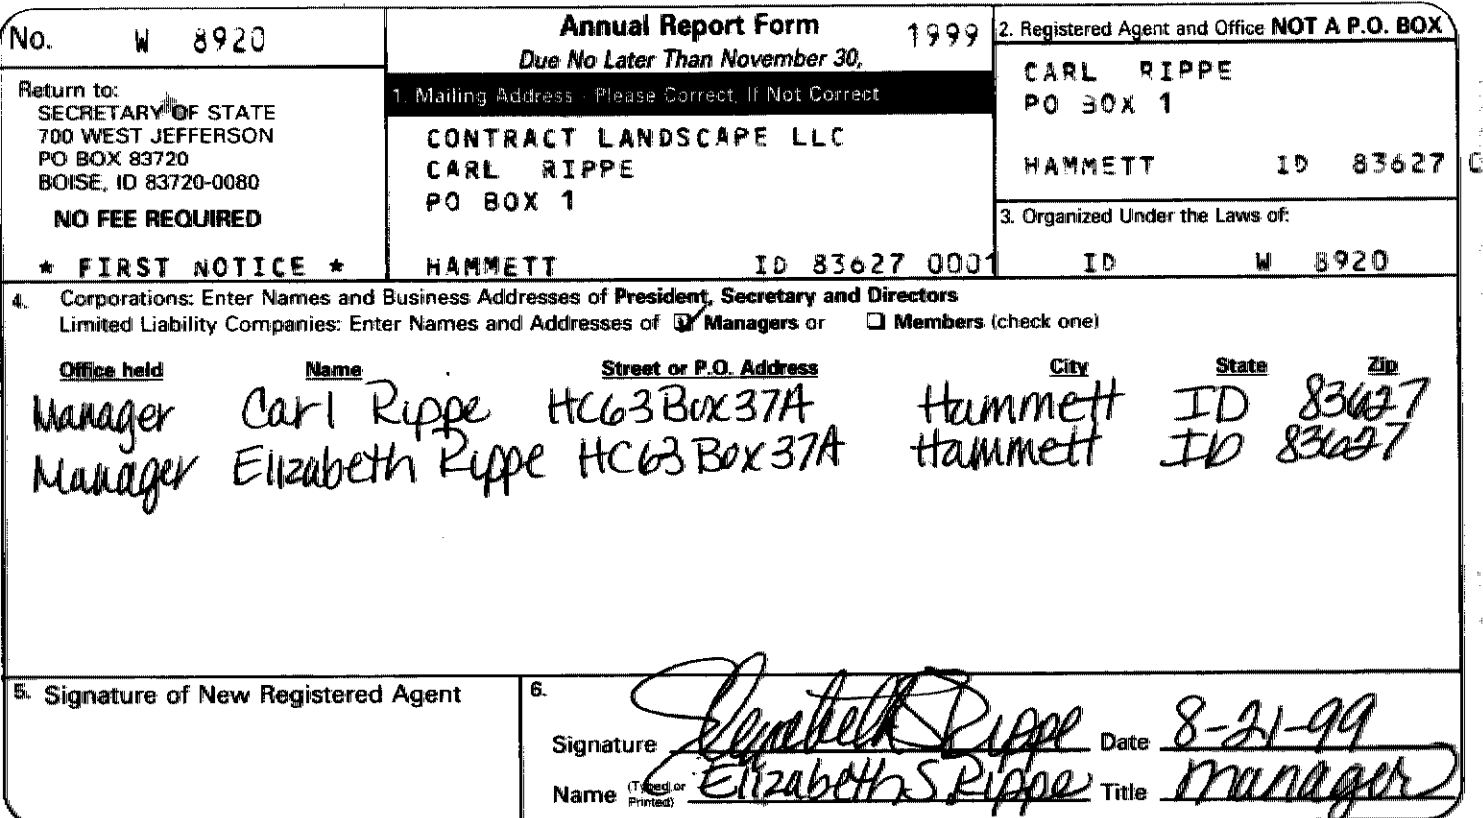 No. W 8920
Return to:
SECRETARY OF STATE
700 WEST JEFFERSON
PO BOX 83720
BOISE, ID 83720-0080
NO FEE REQUIRED
* FIRST NOTICE *
Annual Report Form 1999
Due No Later Than November 30,
1. Mailing Address - Please Correct, If Not Correct
CONTRACT LANDSCAPE LLC
CARL RIPPE
PO BOX 1
HAMMETT ID 83627 0001
2. Registered Agent and Office NOT A P.O. BOX
CARL RIPPE
PO BOX 1
HAMMETT ID 83627
3. Organized Under the Laws of:
ID W 8920
4. Corporations: Enter Names and Business Addresses of President, Secretary and Directors
Limited Liability Companies: Enter Names and Addresses of ☑ Managers or ☐ Members (check one)
Office held Name Street or P.O. Address City State Zip
Manager Carl Rippe HC63 Box 37A Hammett ID 83627
Manager Elizabeth Rippe HC63 Box 37A Hammett ID 83627
5. Signature of New Registered Agent
6.
Signature Elizabeth S Rippe Date 8-21-99
Name (Typed or Printed) Elizabeth S. Rippe Title Manager